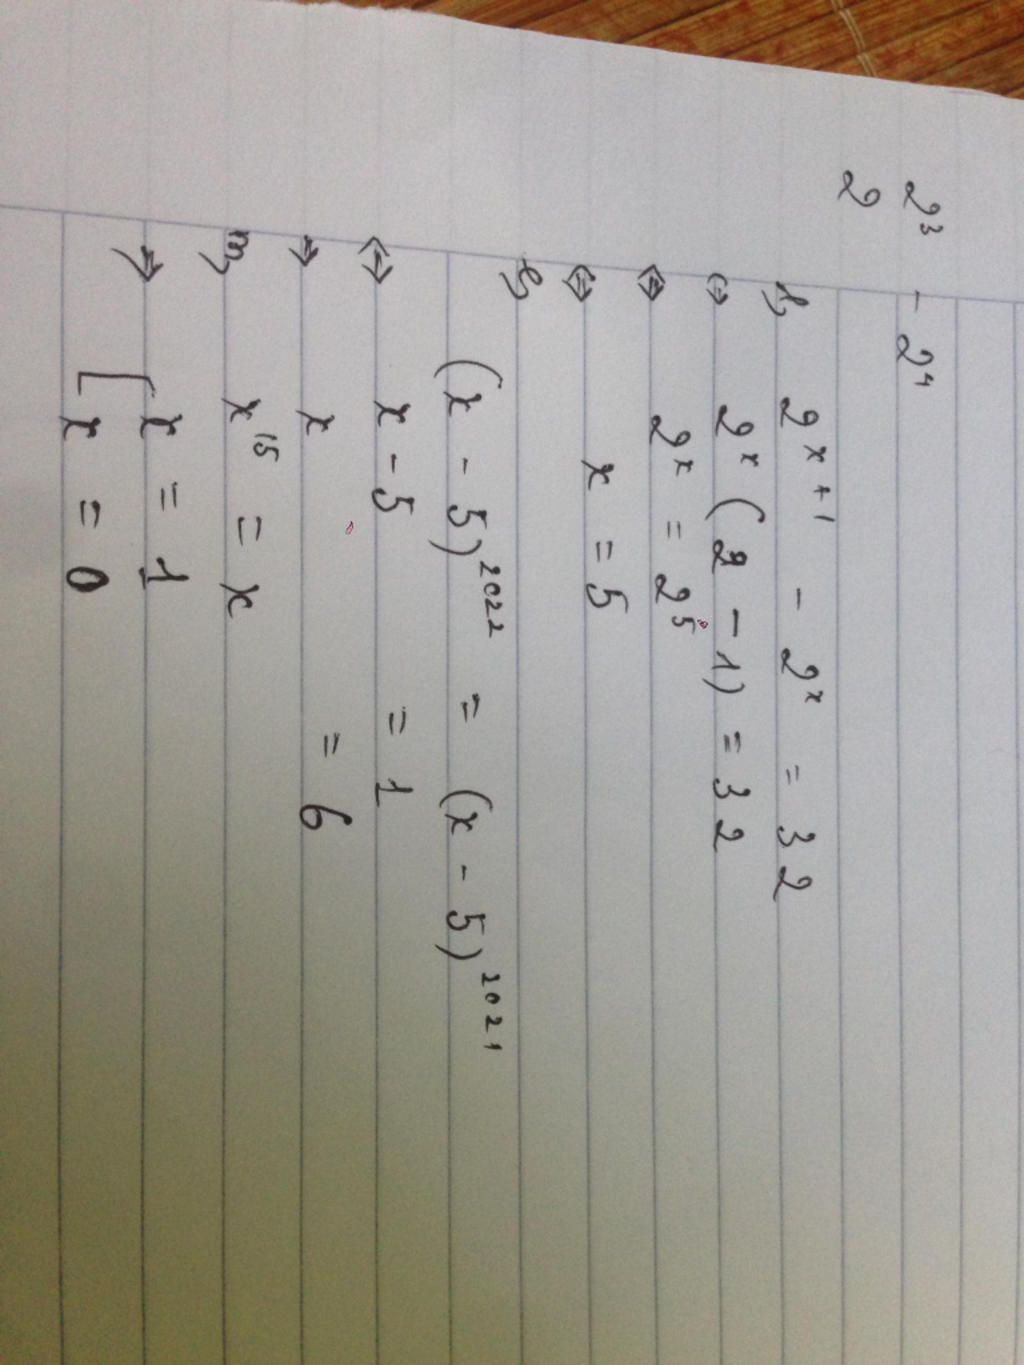 2³ - 2⁴
2
h) 2ˣ⁺¹ - 2ˣ = 32
⇔ 2ˣ (2 - 1) = 32
⇔ 2ˣ = 2⁵
⇔ x = 5
l) (x - 5)²⁰²² = (x - 5)²⁰²¹
⇔ x - 5 = 1
⇒ x = 6
m) x¹⁵ = x
⇒ [ x = 1
x = 0